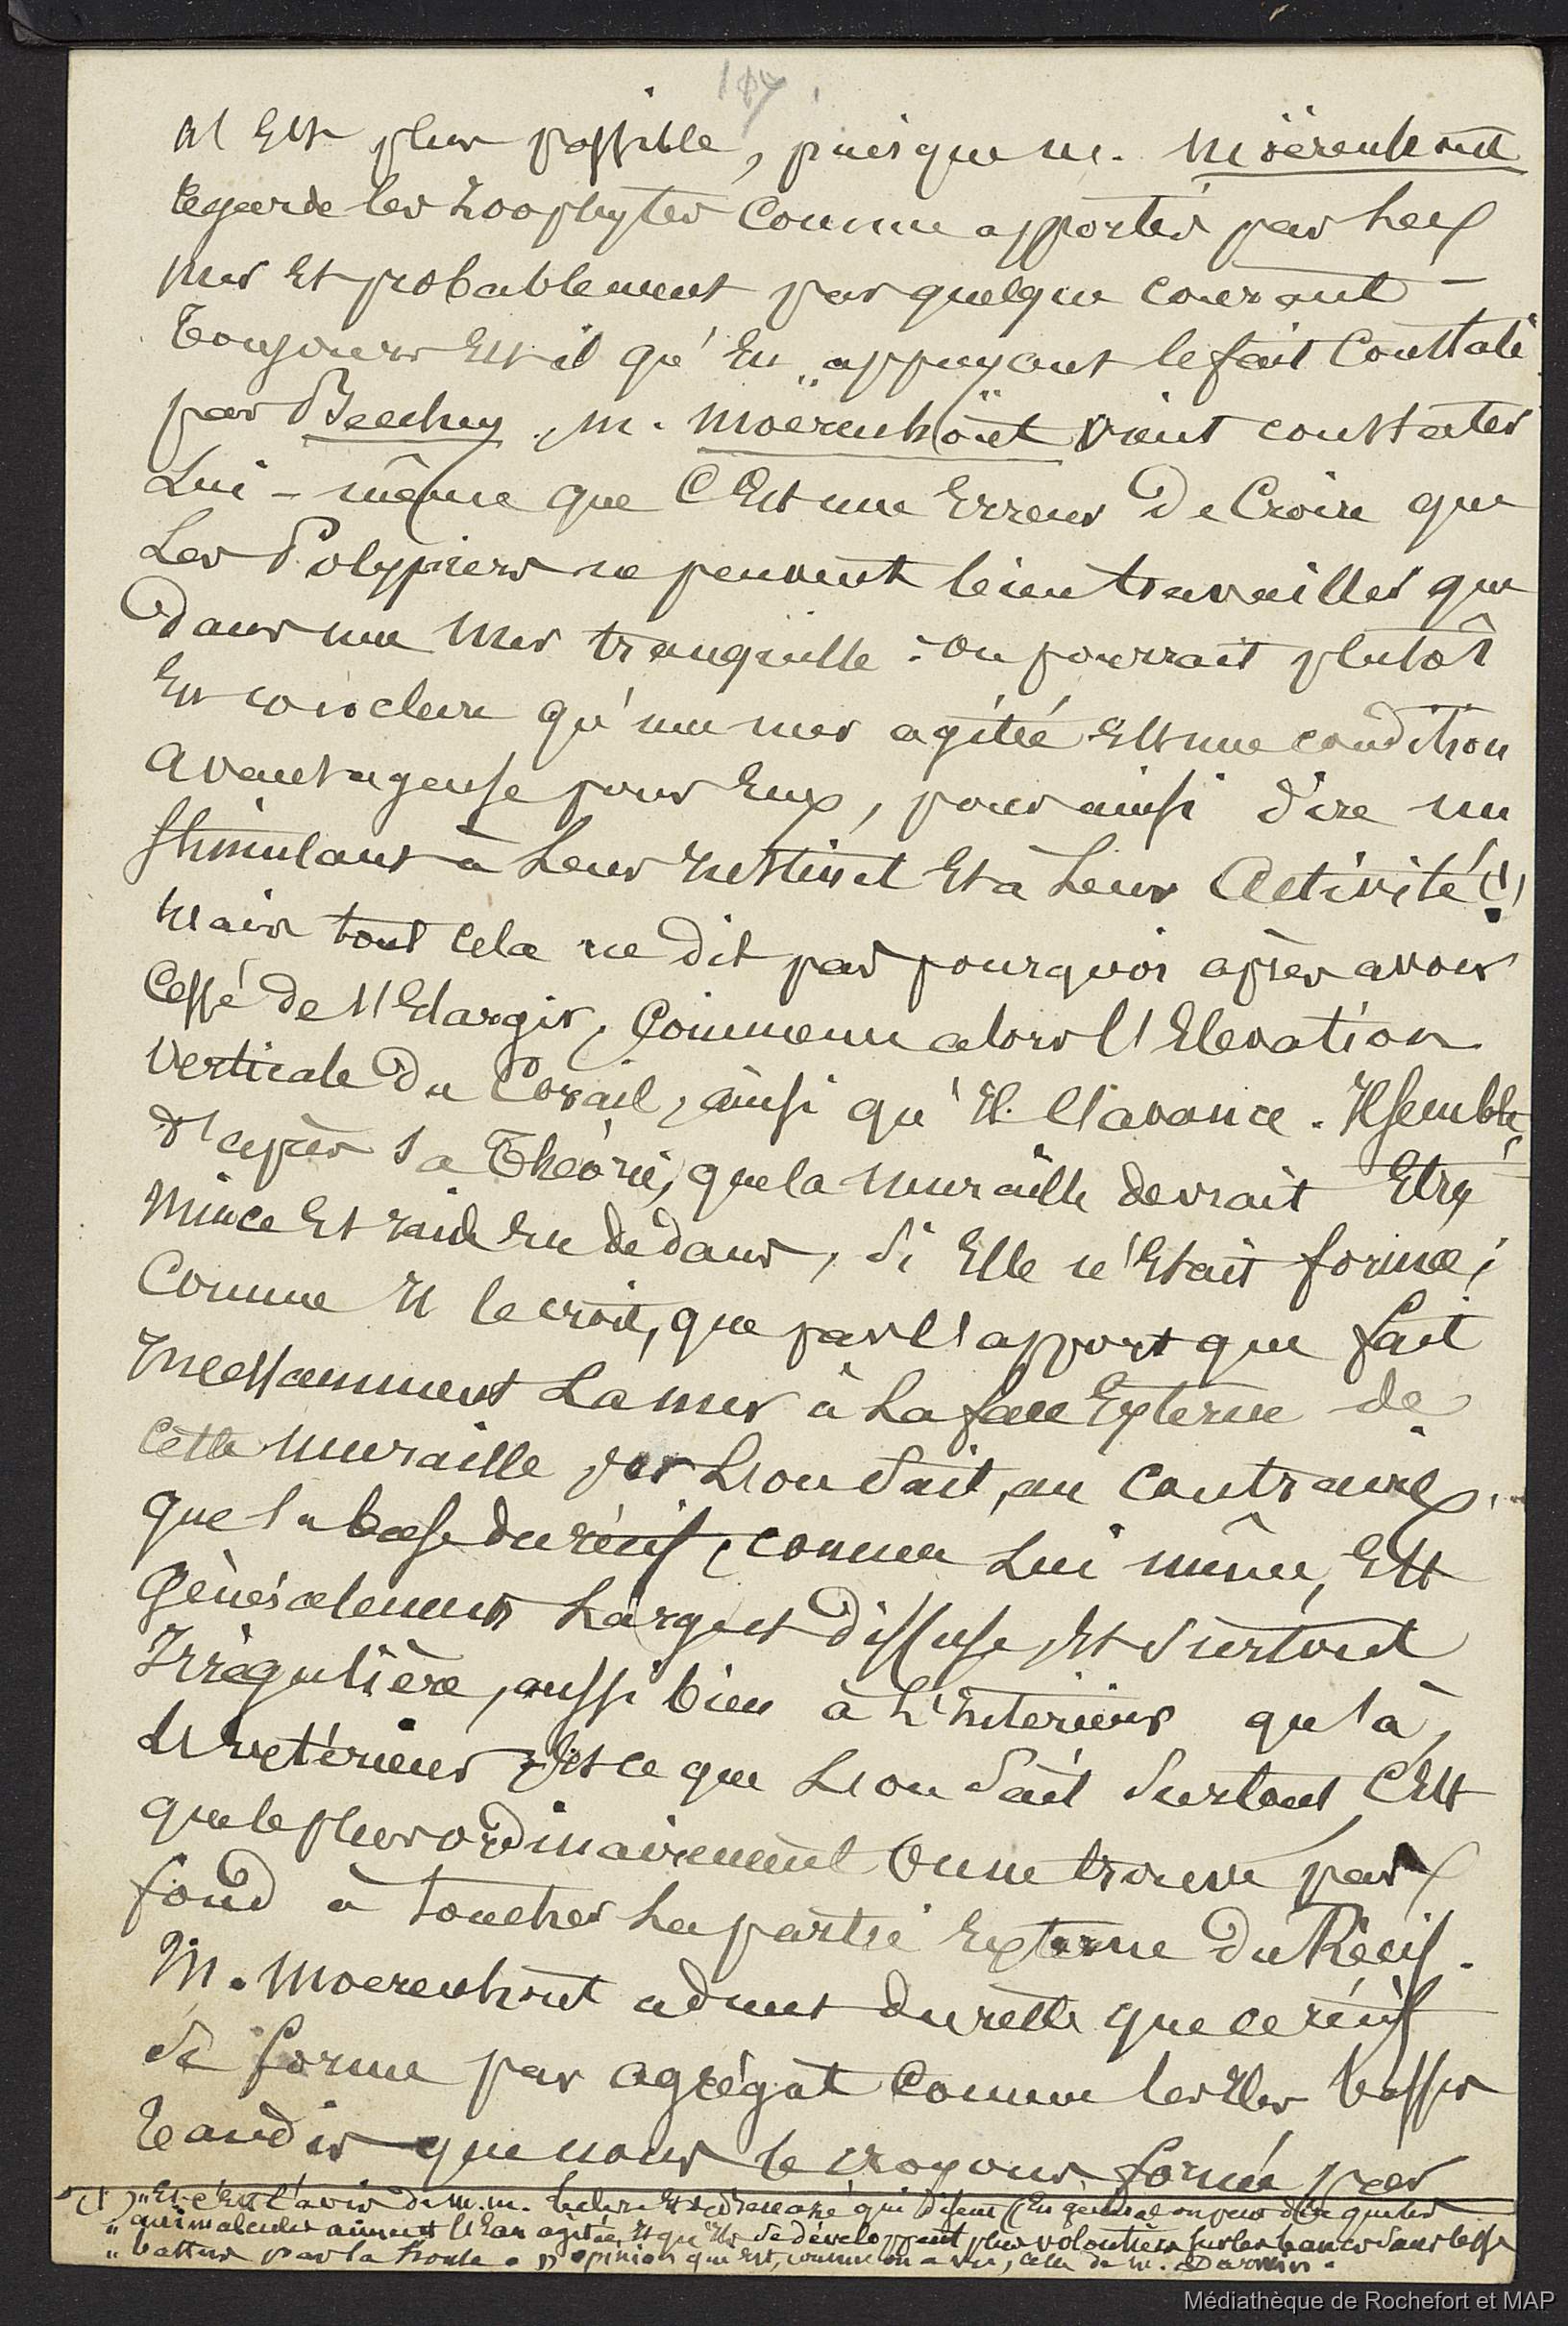 187
il Est plus possible, puisque m. Moërenhout
regarde les Zoophytes Comme apportés par la
mer Et probablement par quelque courant –
Toujours Est-il qu'En appuyant le fait Constaté
par Beechey, M. Moërenhoüt vient constater
Lui-même que C'Est une Erreur De Croire que
Les Polypiers ne peuvent bien travailler que
dans une Mer tranquille : On pourrait plutôt
En conclure qu'une mer agitée Est une condition
avantageuse pour Eux, pour ainsi dire un
Stimulant à Leur Instinct Et à Leur Activité (1)
Mais tout cela ne dit pas pourquoi après avoir
Cessé de s'Elargir, Commence alors l'Elevation
verticale du Corail, ainsi qu'Il l'avance. Il semble,
d'après sa Théorie, que la muraille devrait Etre
Mince Et raide En dedans, Si Elle n'Etait formée,
Comme Il le croit, que par l'apport que fait
Incessamment La mer à La face Externe de
Cette muraille, or L'on Sait, au Contraire,
que la base du récif, comme Lui même, Est
Généralement Large et diffuse, Et Surtout
Irrégulière, aussi bien à L'Intérieur qu'à
L'Extérieur. Et ce que L'on Sait Surtout C'Est
que le plus ordinairement On ne trouve pas
fond à toucher La partie Externe Du Récif.
M. Moerenhout admet du reste que ce récif
se forme par agrégat Comme les Iles basses
tandis que nous le croyons formée par
(1) "Et c'Est l'avis de M.M. qui disent (En général on peut dire que les
" animalcules aiment l'Eau agitée, Et qu'Ils Se développent plus volontiers sur les bancs Sans cesse
" battus par la houle. ") opinion qui Est, comme on a vu, celle de M. Darwin.
Médiathèque de Rochefort et MAP